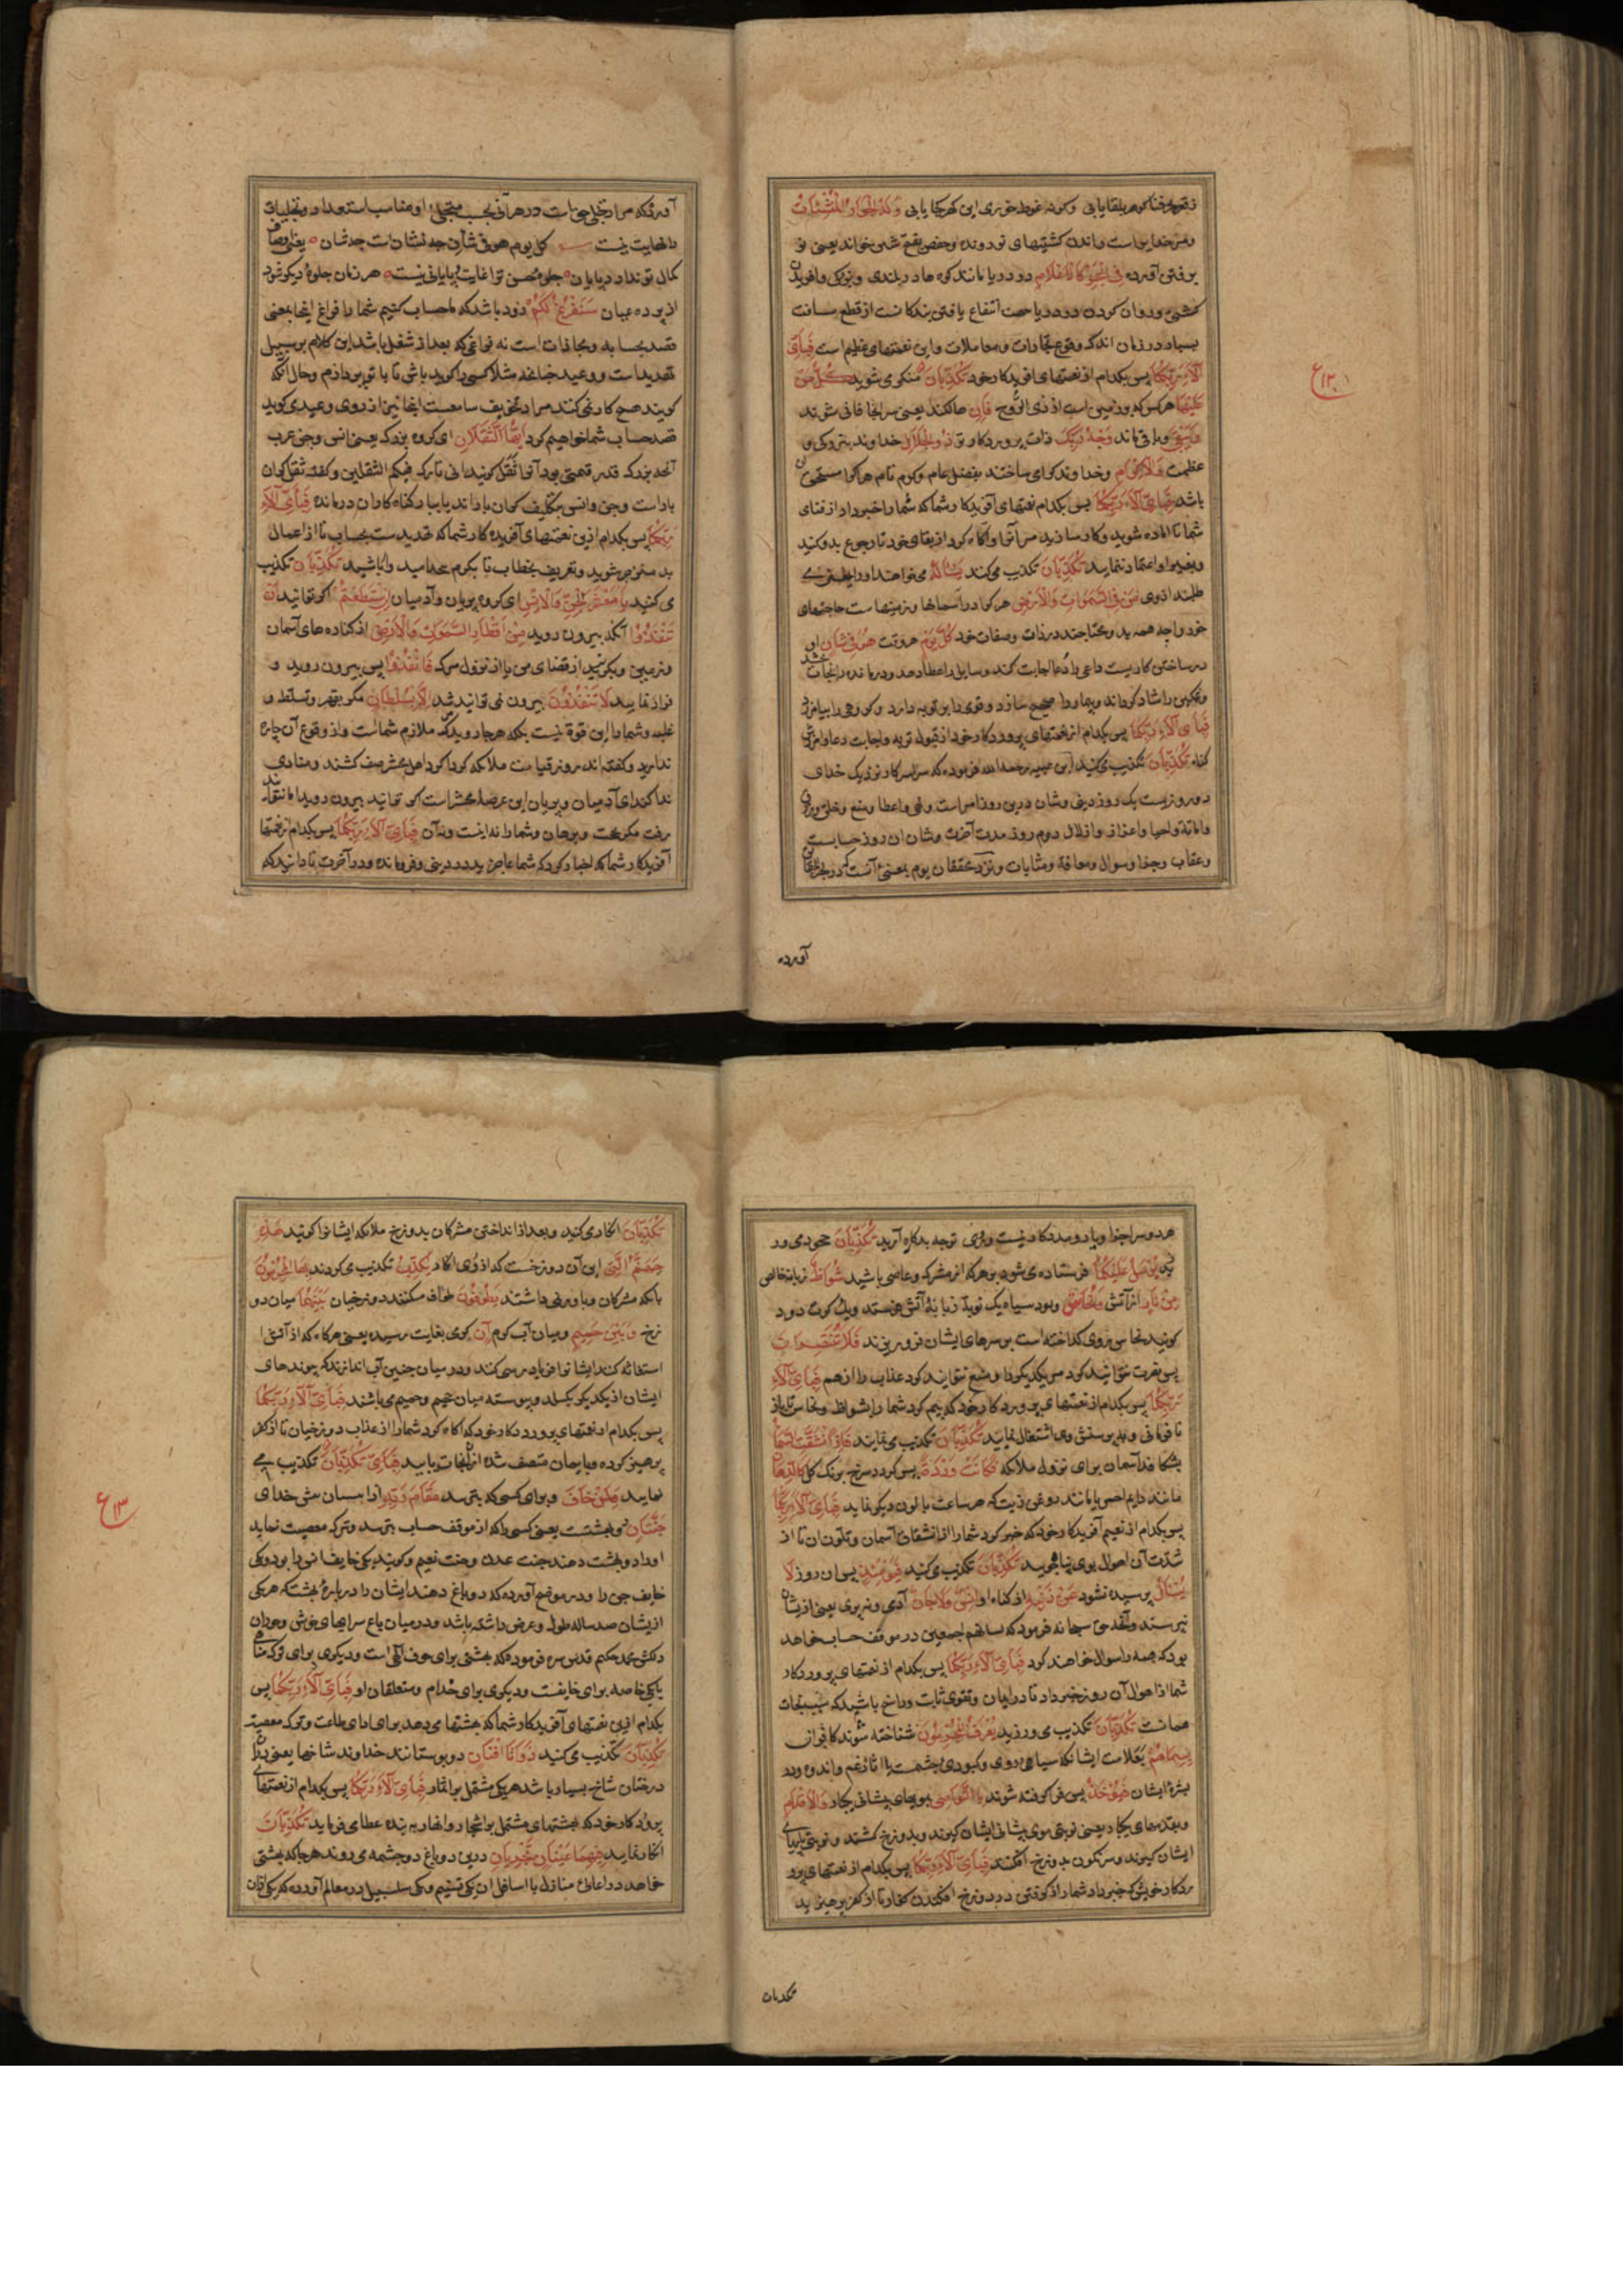 و مر خدایراست ماندن کشتیهای نو دونده و حفص بفتح شین خواند یعنی نو
بر فتن آمرده فِی الْبَحْرِ کَالْاَعْلَامِ دو دریا مانند کوه ها در بلندی و بزرکی و افریدن
کشتی و روان کردن در دریا جهت انتفاع یافتن بندکانست از قطع مسافت
بسیار در زمان اندک و وقوع تجارات و معاملات و این نعمتهای عظیم است فَبِاَیِّ
آلَاءِ رَبِّکُمَا پس بکدام از نعمتهای افریدکار خود تُکَذِّبَانِ منکر می شوید کُلُّ مَنْ
عَلَیْهَا هر کس که بر زمین است از ذی الرّوح فَانٍ هالکند یعنی سرانجام فانی شوند
وَیَبْقَی و باقی ماند وَجْهُ رَبِّکَ ذات پروردکار تو ذُو الْجَلَالِ خداوند بزرکی و
عظمت وَالْاِکْرَامِ و خداوند کرامی ساختن بفضل عام و کرم تام هر کرا مستحق ان
باشد فَبِاَیِّ آلَاءِ رَبِّکُمَا پس بکدام نعمتهای آفریدکار شما که شما را خبر داد از فنای
شما تا اماده شوید و کار سازید مر آنرا و آکاه کرد از بقای خود تا رجوع بدو کنید
و بغیر او اعتماد ننمایید تُکَذِّبَانِ تکذیب می کنید یَسْئَلُهُ می خواهند او را یعنی می
طلبند ازوی مَنْ فِی السَّمٰوَاتِ وَالْاَرْضِ هر که در آسمانها و زمینها است حاجتهای
خود را چه همه بد و محتاجند در ذات و صفات خود کُلَّ یَوْمٍ هر وقت هُوَ فِی شَانٍ او
در ساختن کاریست داعی را دُعا اجابت کند و سایل را عطا دهد و درمانده را نجات بخشد
و غمکین را شاد کرداند و بیمار را صحیح سازد و قومی را بر توبه دارد و کروهی را بیامرزد
فَبِاَیِّ آلَاءِ رَبِّکُمَا پس بکدام از نعمتهای پروردکار خود از قبول توبه و اجابت دعا و آمرزش
کناه تُکَذِّبَانِ تکذیب می کنید ابن عیینه رحمه الله فرموده که سراسر کار نزدیک خدای
دو روزیست یک روز دنیی و شان درین روز امر است و نهی و اعطا و منع و خلق و رزق
و اماتة و احیا و اعزاز و اذلال دوم روز مدت آخرت و شان ان روز حسابست
و عقاب و جزا و سوال و معاقبة و مثابات و نزد محققان یوم بمعنی آنست
آورده
آورده که مراد تجلی حق است در هر آنی بحسب متجلی او مناسب استعداد و تجلیات
را نهایت نیست کل یوم هو فی شأن چه نشان است چه شان یعنی اوصاف
کمال تو ندارد پایان جلوهٔ حسن ترا غایت و پایانی نیست هر زمان جلوهٔ دیکر شود
از پرده عیان سَنَفْرُغُ لَکُمْ زود باشد که ما حساب کنیم شما را فراغ اینجا بمعنی
قصد بحسابه و مجازات است نه فراغی که بعد از شغل باشد این کلام بر سبیل
تهدید است و وعید چنانچه مثلا کسی را کوید باش تا با تو پردازم و حال آنکه
کوینده هیچ کار نمی کند مراد تخویف سامعست اینجا نیز از روی وعیدی کوید
قصد حساب شما خواهیم کرد اَیُّهَا الثَّقَلَانِ ای کروه بزرک یعنی انس و جن عرب
آنچه بزرک قدر و قیمتی بود آنرا ثَقَل کویند انی تارک فیکم الثقلین و کفته ثقل کران
باراست و جن و انس بتکلیف کران باراند یا ببار کناه کاران در مانده فَبِاَیِّ آلَاءِ
رَبِّکُمَا پس بکدام ازین نعمتهای آفریده کار شما که تهدیدست بحساب تا از اعمال
بد منزجر شوید و تعریف بخطاب تا بکرم تُکَذِّبَانِ تکذیب
می کنید یَا مَعْشَرَ الْجِنِّ وَالْاِنْسِ ای کروه پریان و آدمیان اِنِ اسْتَطَعْتُمْ اکر توانید اَنْ
تَنْفُذُوا آنکه بیرون روید مِنْ اَقْطَارِ السَّمٰوَاتِ وَالْاَرْضِ از کناره های آسمان
و زمین و بکریزید از قضای من یا از نزول مرک فَانْفُذُوا پس بیرون روید و
فرار نمایید لَا تَنْفُذُونَ بیرون نمی توانید شد اِلَّا بِسُلْطَانٍ مکر بقهر و تسلط و
غلبه و شما را این قوة نیست بلکه هر جا روید مرک ملازم شماست و از وقوع آن چاره
ندارید و کفته اند روز قیامت ملائکه کرداکرد اهل محشر صف کشند و منادی
ندا کند ای آدمیان و پریان این عرصهٔ محشر است کر توانید بیرون روید اما نتوانید
رفت مکر بحجت و برهان و شما را نه اینست و نه آن فَبِاَیِّ آلَاءِ رَبِّکُمَا پس بکدام از نعمتها
آفریدکار شما که اخبار کرد که شما عاجزید در دنیی و فرومانده و در آخرت تا دانید که
هر دو سرا جز او یار و مددکار نیست و روی توجه بدکاره آرید تُکَذِّبَانِ جحود می ور
زید یُرْسَلُ عَلَیْکُمَا فرستاده می شود بر هر که از مشرک و عاصی باشید شُوَاظٌ زبانه خالص
مِنْ نَارٍ از آتش وَنُحَاسٌ و دود سیاه یک نوبة زبانهٔ آتش فرستد و یک کرت دود
کویند نحاس روی کداخته است بر سرهای ایشان فرو ریزند فَلَا تَنْتَصِرَانِ
پس نصرت نتوانید کرد مر یکدیکر را و منع نتوانید کرد عذاب را از هم فَبِاَیِّ آلَاءِ
رَبِّکُمَا پس بکدام از نعمتهای پروردکار خود که بیم کرد شما را بشواظ و نحاس تا باز
نافرمانی و بر پرستش وی اشتغال نمایید تُکَذِّبَانِ تکذیب می نمایید فَاِذَا انْشَقَّتِ السَّمَاءُ
بشکافد آسمان برای نزول ملائکه فَکَانَتْ وَرْدَةً پس کردد سرخ برنک کل کَالدِّهَانِ
مانند دایم احمر یا مانند روغن زیت که هر ساعت بالون دیکر نماید فَبِاَیِّ آلَاءِ رَبِّکُمَا
پس بکدام از نعیم آفریدکار خود که خبر کرد شما را از انشقاق آسمان و تلون ان تا از
شدّت آن اهوال بوی پناه جویید تُکَذِّبَانِ تکذیب می کنید فَیَوْمَئِذٍ پس ان روز لَا
یُسْئَلُ پرسیده نشود عَنْ ذَنْبِهِ از کناه او اِنْسٌ وَلَا جَانٌّ آدمی و نه پری یعنی ازیشان
نپرسند و آنچه حق سبحانه فرمود که لنسئلنهم اجمعین در موقف حساب خواهد
بود که همه را سوال خواهند کرد فَبِاَیِّ آلَاءِ رَبِّکُمَا پس بکدام از نعمتهای پروردکار
شما از اهوال آن روز خبر داد تا در ایمان و تقوی ثابت و راسخ باشید که سبب نجات
همانست تُکَذِّبَانِ تکذیب می ورزید یُعْرَفُ الْمُجْرِمُونَ شناخته شوند کافران
بِسِیمَاهُمْ بعلامت ایشان که سیاهی روی و کبودی چشمست یا اثار غم و اندوه در
بشرهٔ ایشان فَیُؤْخَذُ پس فرا کرفته شوند بِالنَّوَاصِی بمویهای پیشانی یکبار وَالْاَقْدَامِ
و بقدمهای یکبار یعنی نوبتی موی پیشانی ایشان کیرند و بدوزخ کشند و نوبتی پایهای
ایشان کیرند و سرنکون بدوزخ افکنند فَبِاَیِّ آلَاءِ رَبِّکُمَا پس بکدام از نعمتهای پرو
ردکار خویش که خبر داد شما را از کرفتن و بدوزخ افکندن کفار تا از کفر پرهیزید
تکذبان
تُکَذِّبَانِ انکار می کنید و بعد از انداختن مشرکان بدوزخ ملائکه ایشانرا کویند هٰذِهِ
جَهَنَّمُ الَّتِی این آن دوزخست که از روی انکار یُکَذِّبُ تکذیب می کردند بِهَا الْمُجْرِمُونَ
بانکه مشرکان و باور نمی داشتند یَطُوفُونَ طواف میکنند دوزخیان بَیْنَهَا میان دو
زخ وَبَیْنَ حَمِیمٍ و میان آب کرم آنٍ کرمی بغایت رسیده یعنی هرکاه که از آتش ا
استغاثه کنند ایشانرا فریادرسی کنند و در میان چنین آب اندازند که پیوندهای
ایشان از یکدیکر بکسلد و پیوسته میان جحیم و حمیم می باشند فَبِاَیِّ آلَاءِ رَبِّکُمَا
پس بکدام از نعمتهای پروردکار خود که آکاه کرد شما را از عذاب دوزخیان تا از کفر
پرهیز کرده و بایمان متصف شده ازان نجات یابید فَبِاَیِّ تُکَذِّبَانِ تکذیب می
نمایید وَلِمَنْ خَافَ و برای کسی که بترسد مَقَامَ رَبِّهِ از ایستادن پیش خدای
جَنَّتَانِ دو بهشتست یعنی کسی را که از موقف حساب بترسد و ترک معصیت نماید
او را دو بهشت دهند جنت عدن و جنت نعیم و کویند یکی خایف انس را بود و یکی
خایف جن را و در موضح آورده که دو باغ دهند ایشان را در بارهٔ بهشت که هر یکی
ازیشان صد ساله طول و عرض داشته باشد و در میان باغ سراهای خوش و حوران
دلکش محمد حکیم قدس سره فرموده که بهشتی برای خوف آلهی است و دیکری برای ترک مناهی
یا یکی خاصه برای خایفست و دیکری برای خدام و متعلقان او فَبِاَیِّ آلَاءِ رَبِّکُمَا پس
بکدام ازین نعمتهای آفریدکار شما که بهشتها می دهد برای ادای طاعت و ترک معصیت
تُکَذِّبَانِ تکذیب می کنید ذَوَاتَا اَفْنَانٍ دو بوستانند خداوند شاخها یعنی دران
درختان شاخ بسیار باشد هر یکی مشتمل بر اثمار فَبِاَیِّ آلَاءِ رَبِّکُمَا پس بکدام از نعمتهای
پروردکار خود که بهشتهای مشتمل بر اشجار و انهار به بنده عطا می فرماید تُکَذِّبَانِ
انکار نمایید فِیهِمَا عَیْنَانِ تَجْرِیَانِ درین دو باغ دو چشمه می روند هر جا که بهشتی
خواهد در اعالی منازل یا اسافل ان یکی تسنیم و یکی سلسبیل در معالم آورده که یکی ازان